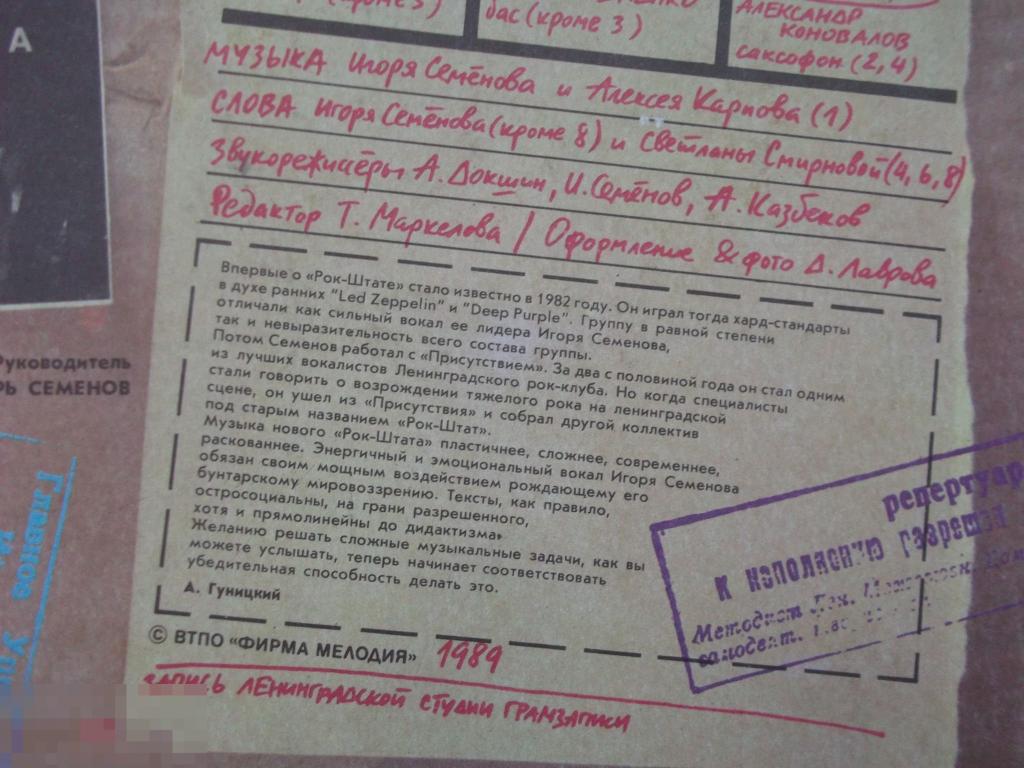 А
(кроме 3)
бас (кроме 3)
АЛЕКСАНДР
КОНОВАЛОВ
саксофон (2,4)
МУЗЫКА Игоря Семёнова и Алексея Карпова (1)
СЛОВА Игоря Семёнова (кроме 8) и Светланы Смирновой (4,6,8)
Звукорежиссёры А. Докшин, И. Семёнов, А. Казбеков
Редактор Т. Маркелова / Оформление & фото Д. Лаврова
Впервые о «Рок-Штате» стало известно в 1982 году. Он играл тогда хард-стандарты
в духе ранних "Led Zeppelin" и "Deep Purple". Группу в равной степени
отличали как сильный вокал ее лидера Игоря Семенова,
так и невыразительность всего состава группы.
Потом Семенов работал с «Присутствием». За два с половиной года он стал одним
из лучших вокалистов Ленинградского рок-клуба. Но когда специалисты
стали говорить о возрождении тяжелого рока на ленинградской
сцене, он ушел из «Присутствия» и собрал другой коллектив
под старым названием «Рок-Штат».
Музыка нового «Рок-Штата» пластичнее, сложнее, современнее,
раскованнее. Энергичный и эмоциональный вокал Игоря Семенова
обязан своим мощным воздействием рождающему его
бунтарскому мировоззрению. Тексты, как правило,
остросоциальны, на грани разрешенного,
хотя и прямолинейны до дидактизма.
Желанию решать сложные музыкальные задачи, как вы
можете услышать, теперь начинает соответствовать
убедительная способность делать это.
А. Гуницкий
© ВТПО «ФИРМА МЕЛОДИЯ» 1989
ЗАПИСЬ ЛЕНИНГРАДСКОЙ СТУДИИ ГРАМЗАПИСИ
Руководитель
РЬ СЕМЕНОВ
Главное Упр
репертуар
к исполнению разрешен
Методист
самодеят.